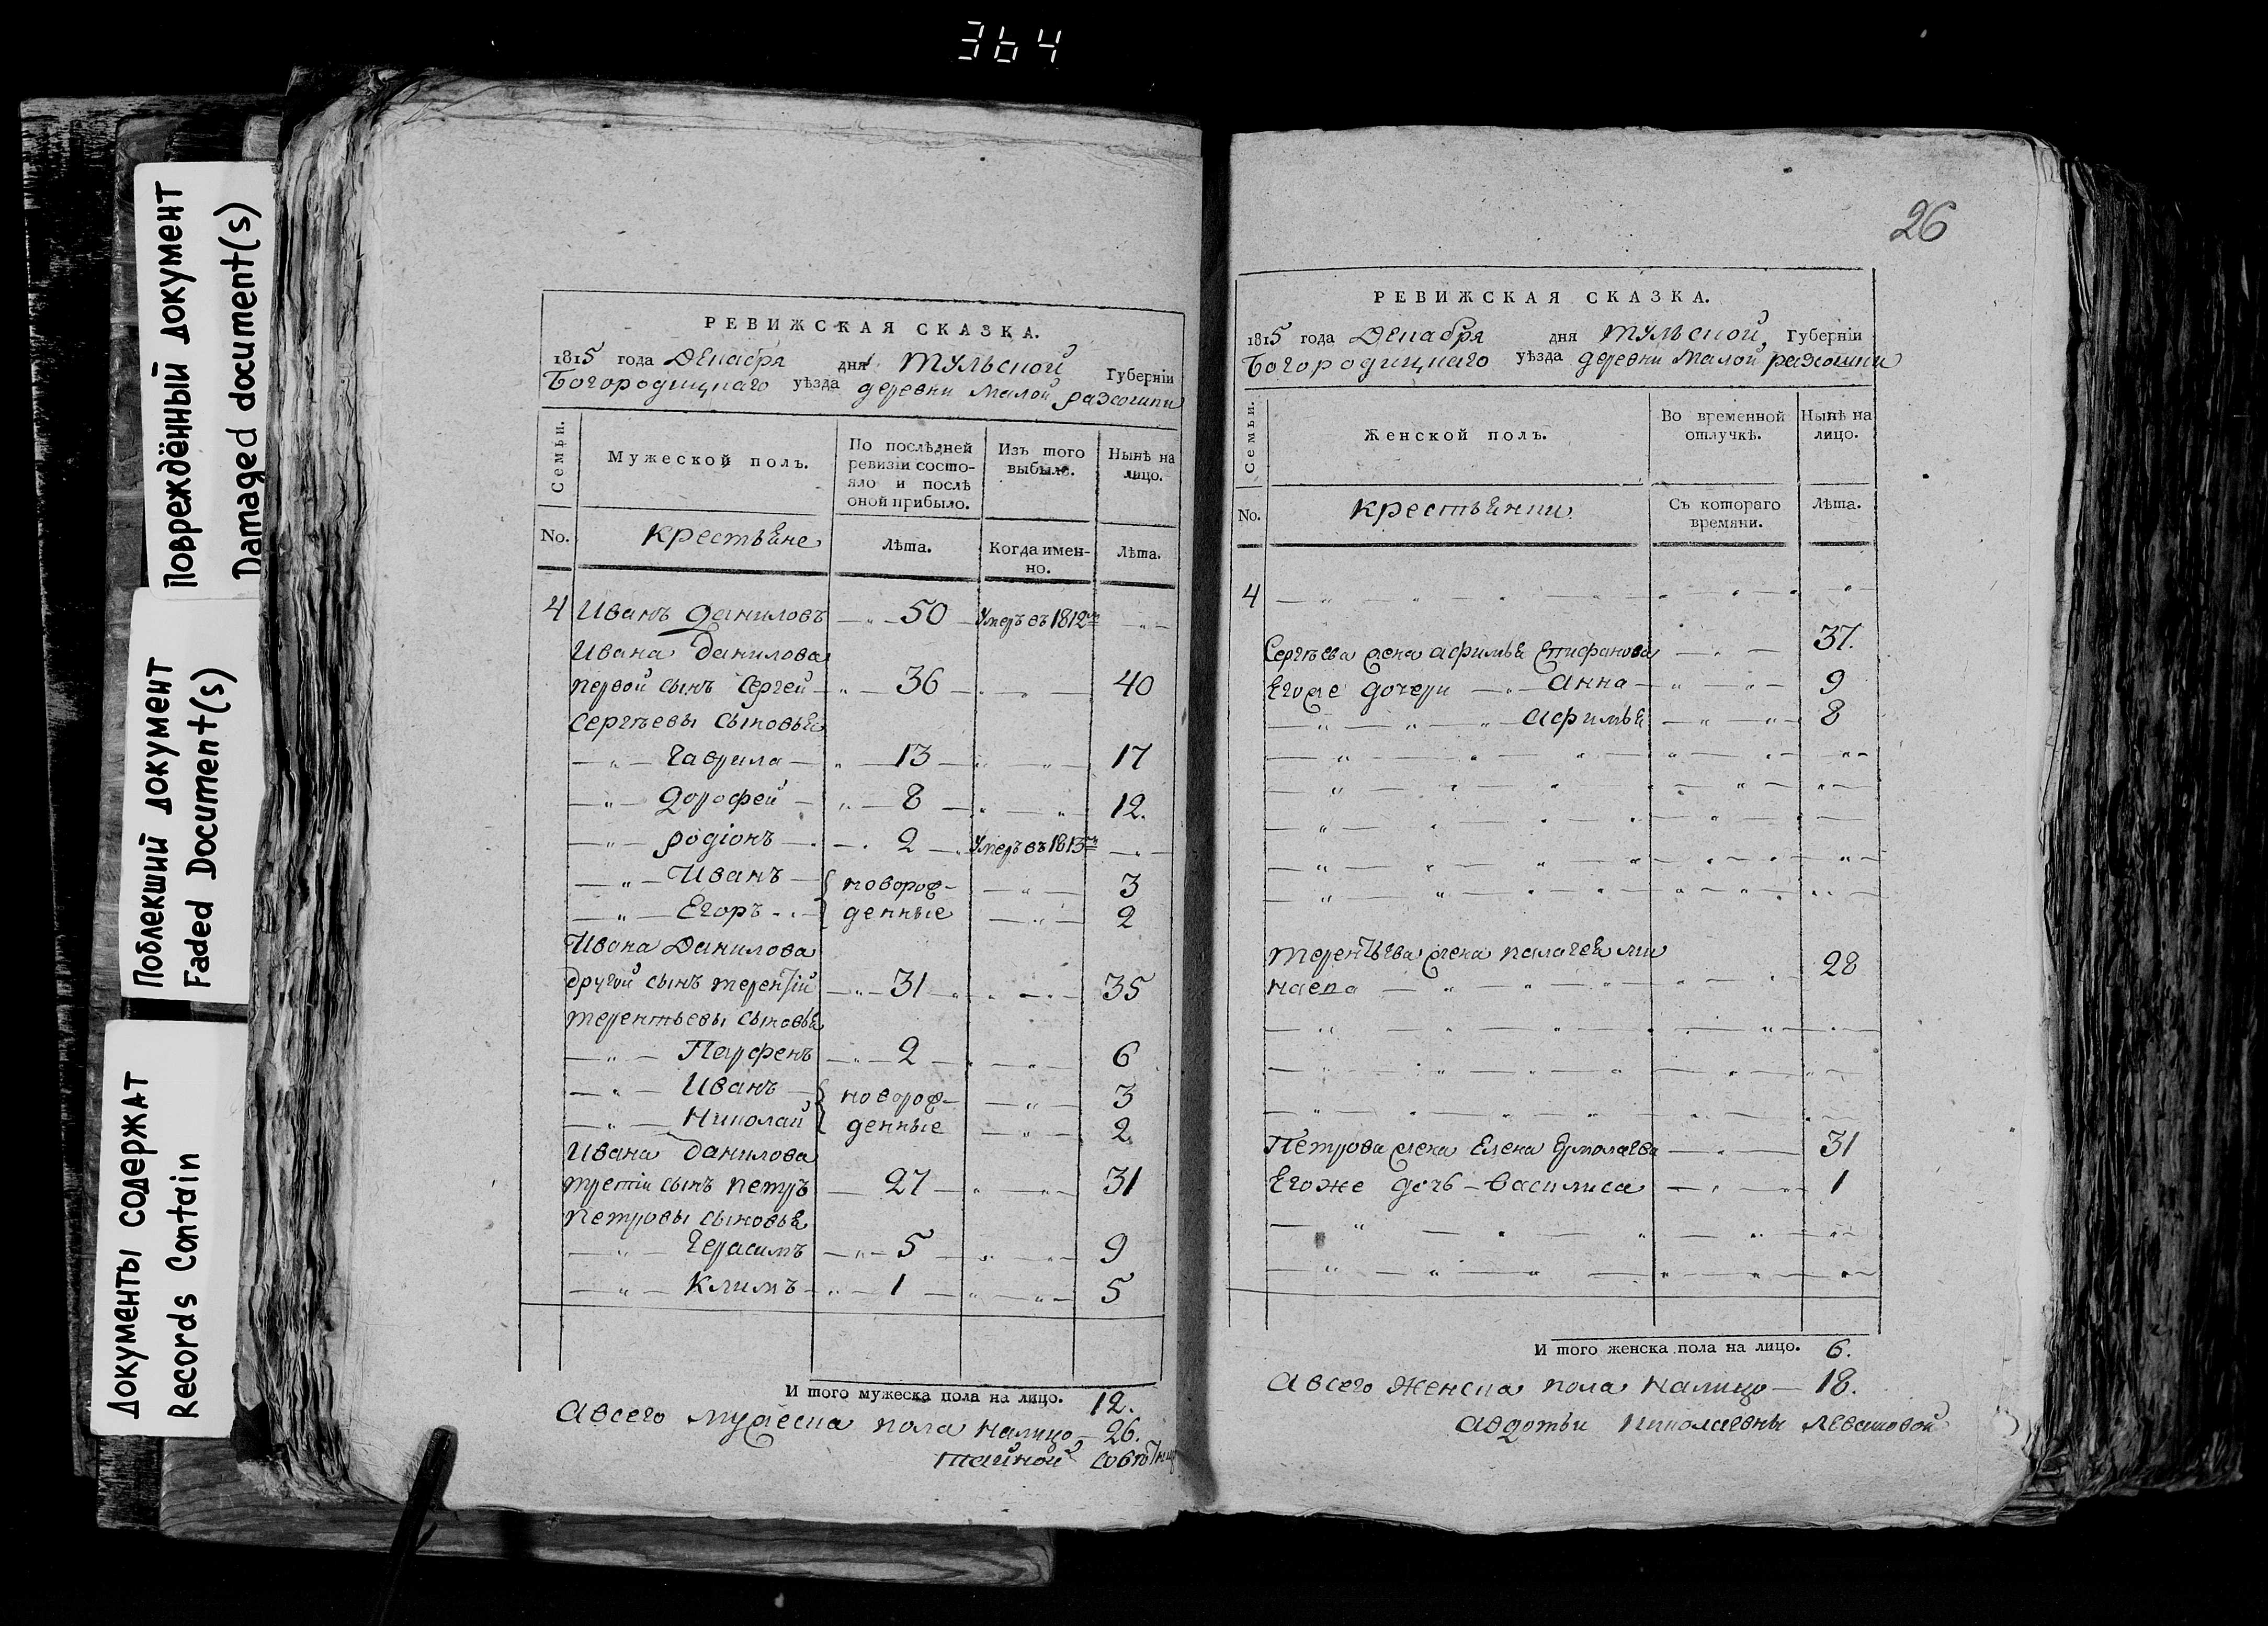 364
Повреждённый документ
Damaged document(s)
Поблекший документ
Faded Document(s)
Документы содержат
Records Contain
РЕВИЖСКАЯ СКАЗКА.
1815 года Декабря дня Тульской Губерніи
Богородицкаго уѣзда деревни малой
Семьи.
Мужеской полъ.
По послѣдней ревизіи состояло и послѣ оной прибыло.
Изъ того выбыло.
Нынѣ на лицо.
No.
крестьяне
Лѣта.
Когда именно.
Лѣта.
4 Иванъ Даниловъ 50 Умеръ въ 1812м
Ивана Данилова
первой сынъ Сергей 36 40
Сергѣевы сыновья
Гаврила 13 17
Дорофей 8 12.
родіонъ 2 Умеръ въ 1813м
Иванъ новорож- 3
Егоръ денные 2
Ивана Данилова
другой сынъ терентій 31 35
терентьевы сыновья
Парфенъ 2 6
Иванъ новорож- 3
Николай денные 2.
Ивана Данилова
третіи сынъ петръ 27 31
петровы сыновья
Герасимъ 5 9
Климъ 1 5
И того мужеска пола на лицо. 12.
А всего мужеска пола налицо 26.
тайной
26
РЕВИЖСКАЯ СКАЗКА.
1815 года Декабря дня Тульской Губерніи
Богородицкаго уѣзда деревни малой
Семьи.
Женской полъ.
Во временной отлучкѣ.
Нынѣ на лицо.
No.
крестьянки
Съ котораго времяни.
Лѣта.
4
Сергѣева жена афимья Епифанова 37.
Егоже дочери Анна 9
афимья 8
терентьева жена пелагея ми
наева 28
Петрова жена Елена Ермолаева 31
Егоже дочь Василиса 1
И того женска пола на лицо. 6.
А всего женска пола налицо 18.
авдотьи николаевны Левашовой